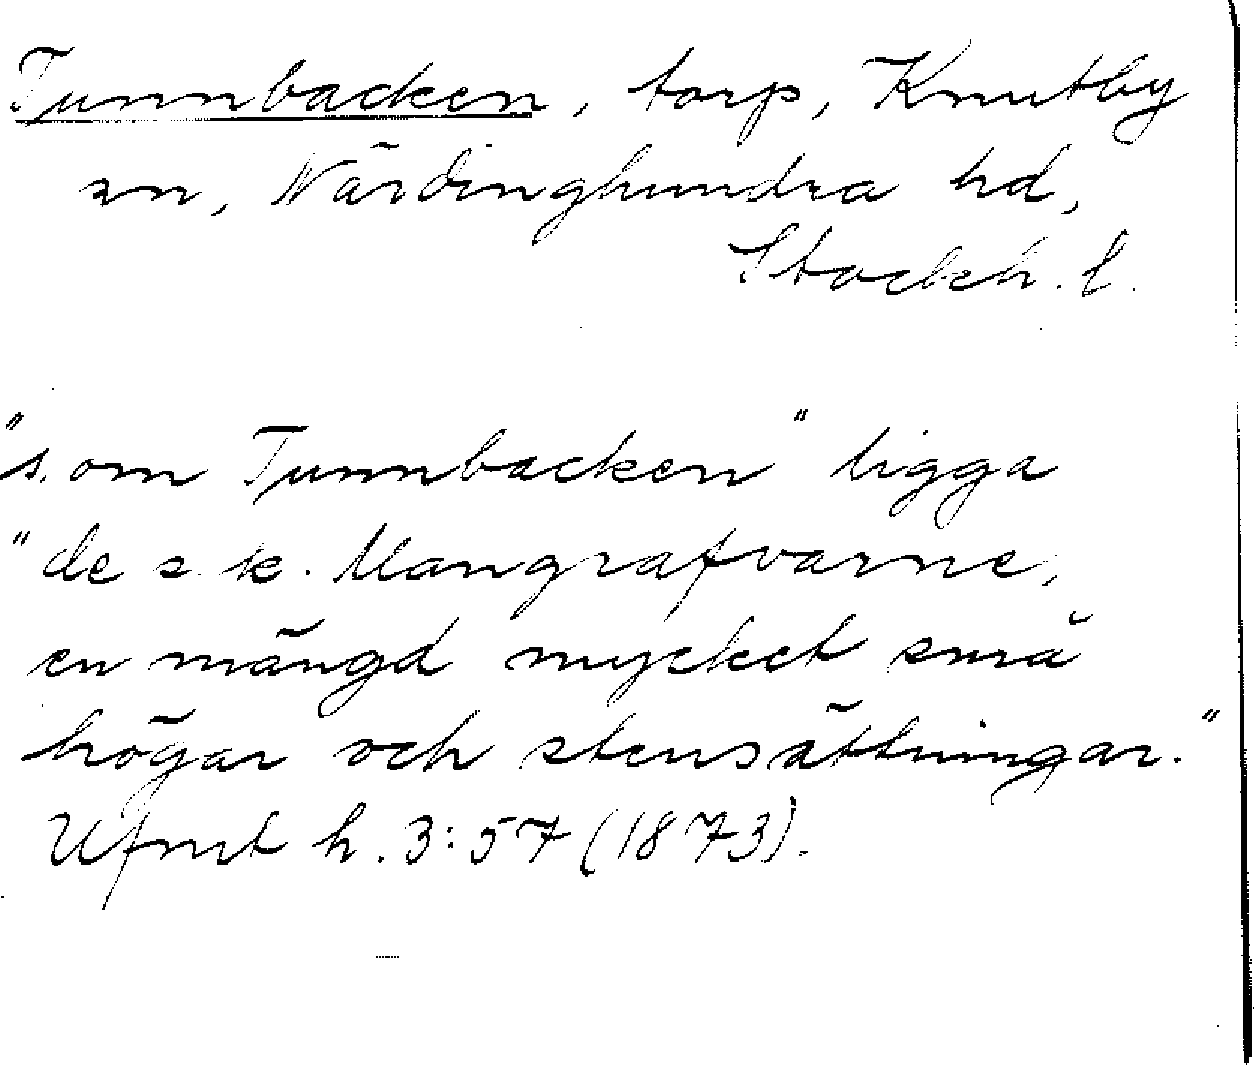 Tunnbacken, torp, Knutby
sn, Närdinghundra hd,
Stockh. l.
"s. om Tunnbacken" ligga
"de s. k. Mangrafvarne,
en mängd mycket små
högar och stensättningar."
Ufmt h. 3:57 (1873).